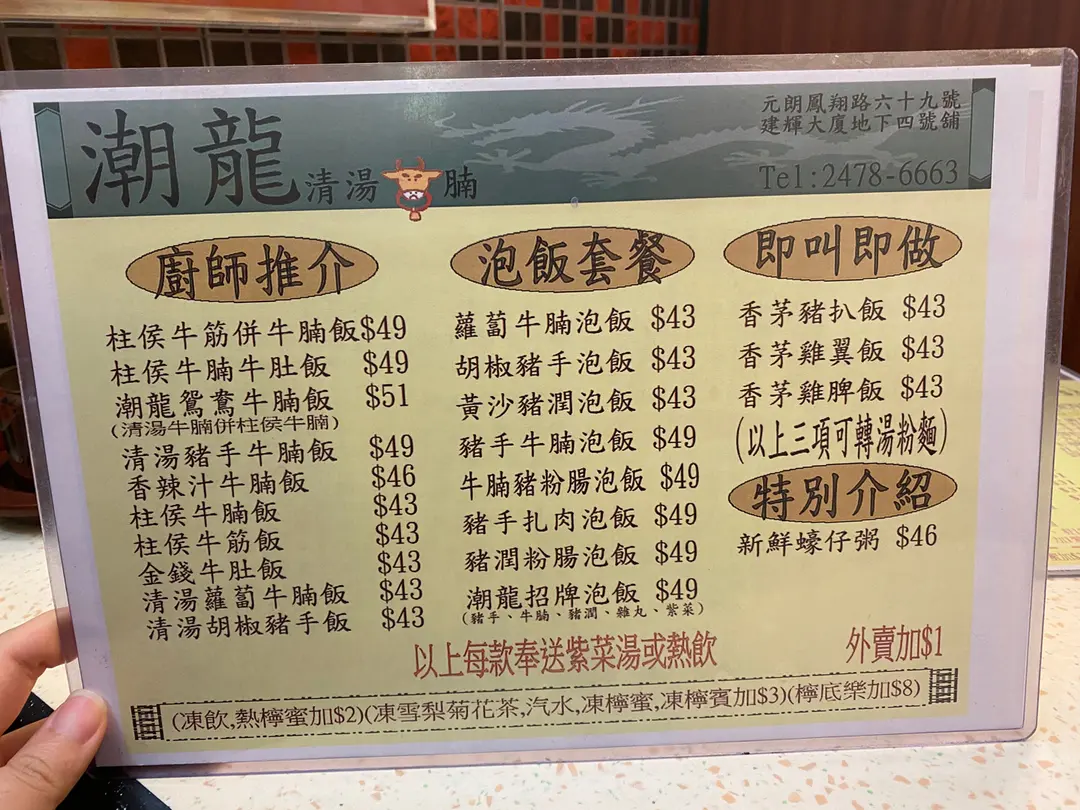 潮龍清湯腩
元朗鳳翔路六十九號
建輝大廈地下四號舖
Tel:2478-6663
廚師推介
柱侯牛筋併牛腩飯$49
柱侯牛腩牛肚飯 $49
潮龍鴛鴦牛腩飯 $51
(清湯牛腩併柱侯牛腩)
清湯豬手牛腩飯 $49
香辣汁牛腩飯 $46
柱侯牛腩飯 $43
柱侯牛筋飯 $43
金錢牛肚飯 $43
清湯蘿蔔牛腩飯 $43
清湯胡椒豬手飯 $43
泡飯套餐
蘿蔔牛腩泡飯 $43
胡椒豬手泡飯 $43
黃沙豬潤泡飯 $43
豬手牛腩泡飯 $49
牛腩豬粉腸泡飯 $49
豬手扎肉泡飯 $49
豬潤粉腸泡飯 $49
潮龍招牌泡飯 $49
(豬手、牛腩、豬潤、雜丸、紫菜)
即叫即做
香茅豬扒飯 $43
香茅雞翼飯 $43
香茅雞脾飯 $43
(以上三項可轉湯粉麵)
特別介紹
新鮮蠔仔粥 $46
以上每款奉送紫菜湯或熱飲
外賣加$1
(凍飲,熱檸蜜加$2)(凍雪梨菊花茶,汽水,凍檸蜜,凍檸賓加$3)(檸底樂加$8)